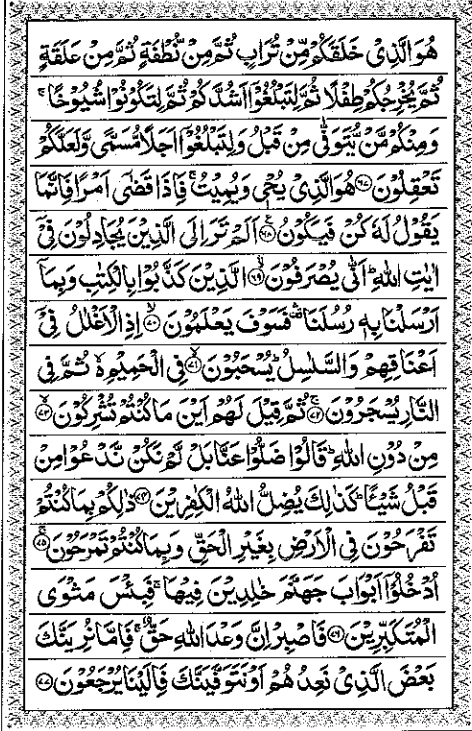 هُوَ الَّذِىْ خَلَقَكُمْ مِّنْ تُرَابٍ ثُمَّ مِنْ نُّطْفَةٍ ثُمَّ مِنْ عَلَقَةٍ
ثُمَّ يُخْرِجُكُمْ طِفْلًا ثُمَّ لِتَبْلُغُوْٓا اَشُدَّكُمْ ثُمَّ لِتَكُوْنُوْا شُيُوْخًا ۚ
وَمِنْكُمْ مَّنْ يُّتَوَفّٰى مِنْ قَبْلُ وَلِتَبْلُغُوْٓا اَجَلًا مُّسَمًّى وَّلَعَلَّكُمْ
تَعْقِلُوْنَ ﴿۶۷﴾ هُوَ الَّذِىْ يُحْىٖ وَيُمِيْتُ ۚ فَاِذَا قَضٰٓى اَمْرًا فَاِنَّمَا
يَقُوْلُ لَهٗ كُنْ فَيَكُوْنُ ﴿۶۸﴾ اَلَمْ تَرَ اِلَى الَّذِيْنَ يُجَادِلُوْنَ فِىْٓ
اٰيٰتِ اللّٰهِ ؕ اَنّٰى يُصْرَفُوْنَ ﴿۶۹﴾ الَّذِيْنَ كَذَّبُوْا بِالْكِتٰبِ وَبِمَآ
اَرْسَلْنَا بِهٖ رُسُلَنَا ۛ فَسَوْفَ يَعْلَمُوْنَ ﴿۷۰﴾ اِذِ الْاَغْلٰلُ فِىْٓ
اَعْنَاقِهِمْ وَالسَّلٰسِلُ ؕ يُسْحَبُوْنَ ﴿۷۱﴾ فِى الْحَمِيْمِ ۙ۬ ثُمَّ فِى
النَّارِ يُسْجَرُوْنَ ﴿۷۲﴾ ثُمَّ قِيْلَ لَهُمْ اَيْنَ مَا كُنْتُمْ تُشْرِكُوْنَ ﴿۷۳﴾
مِنْ دُوْنِ اللّٰهِ ؕ قَالُوْا ضَلُّوْا عَنَّا بَلْ لَّمْ نَكُنْ نَّدْعُوْا مِنْ
قَبْلُ شَيْـًٔا ؕ كَذٰلِكَ يُضِلُّ اللّٰهُ الْكٰفِرِيْنَ ﴿۷۴﴾ ذٰلِكُمْ بِمَا كُنْتُمْ
تَفْرَحُوْنَ فِى الْاَرْضِ بِغَيْرِ الْحَقِّ وَبِمَا كُنْتُمْ تَمْرَحُوْنَ ﴿۷۵﴾
اُدْخُلُوْٓا اَبْوَابَ جَهَنَّمَ خٰلِدِيْنَ فِيْهَا ۚ فَبِئْسَ مَثْوَى
الْمُتَكَبِّرِيْنَ ﴿۷۶﴾ فَاصْبِرْ اِنَّ وَعْدَ اللّٰهِ حَقٌّ ۚ فَاِمَّا نُرِيَنَّكَ
بَعْضَ الَّذِىْ نَعِدُهُمْ اَوْ نَتَوَفَّيَنَّكَ فَاِلَيْنَا يُرْجَعُوْنَ ﴿۷۷﴾